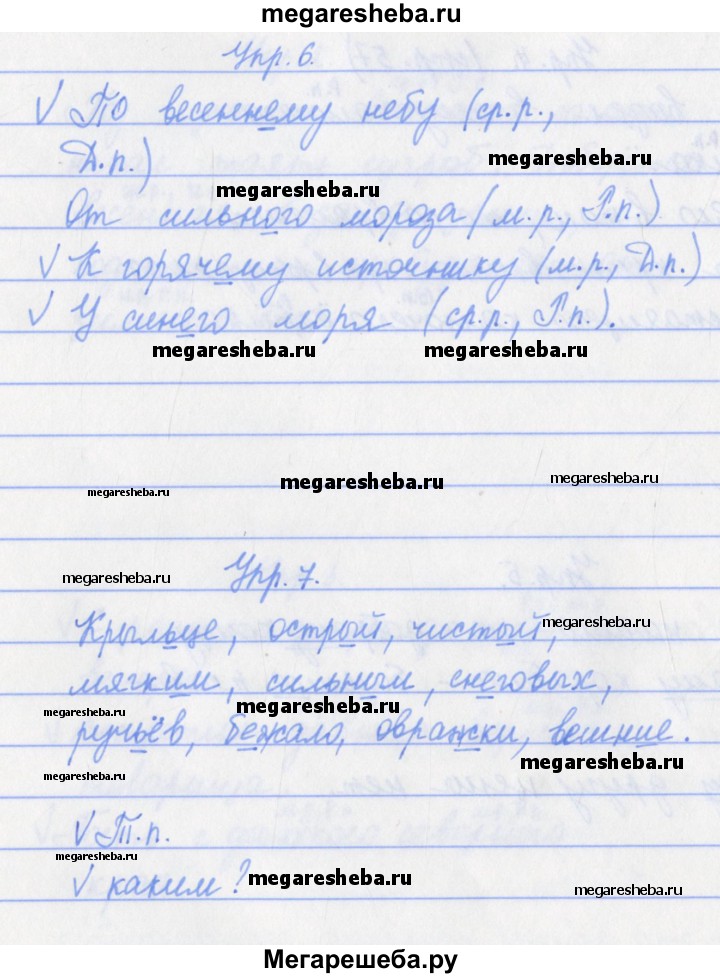 megaresheba.ru
Упр. 6.
√ По весеннему небу (ср.р.,
Д.п.)
megaresheba.ru
megaresheba.ru
От сильного мороза (м.р., Р.п.)
√ К горячему источнику (м.р., Д.п.)
√ У синего моря (ср.р., Р.п.).
megaresheba.ru megaresheba.ru
megaresheba.ru megaresheba.ru megaresheba.ru
megaresheba.ru
Упр. 7.
Крыльце, острый, чистый,
megaresheba.ru
мягким, сильным, снеговых,
megaresheba.ru megaresheba.ru
ручьёв, бежало, овражки, вешние.
megaresheba.ru
megaresheba.ru
√ Т.п.
megaresheba.ru
√ каким?
megaresheba.ru
megaresheba.ru
Мегарешеба.ру